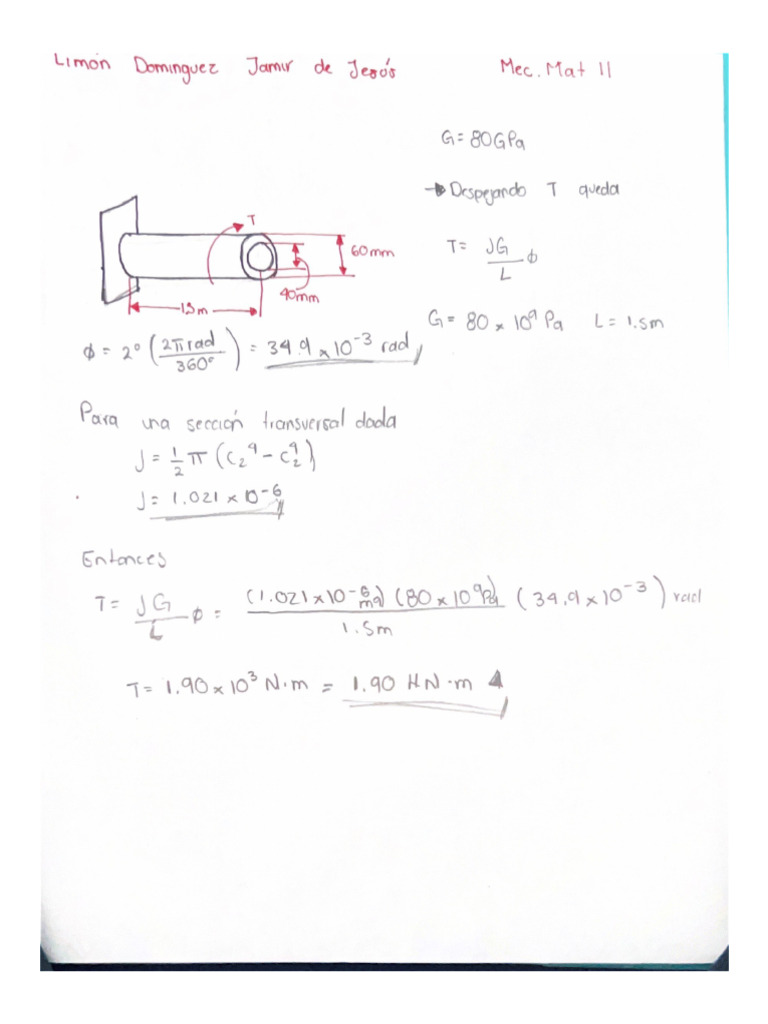 Limón Dominguez Jamir de Jesús Mec. Mat II
G= 80GPa
→ Despejando T queda
T
60mm
T= JG/L ϕ
40mm
1.5m
G= 80 × 10⁹ Pa L= 1.5m
ϕ = 2° (2π rad/360°) = 34.9 × 10⁻³ rad
Para una sección transversal dada
J= 1/2 π (C₂⁴ - C₂⁴)
J= 1.021 × 10⁻⁶
Entonces
T= JG/L ϕ = (1.021×10⁻⁶ m⁴) (80×10⁹ Pa)/1.5m (34.9×10⁻³) rad
T= 1.90 × 10³ N·m = 1.90 KN·m